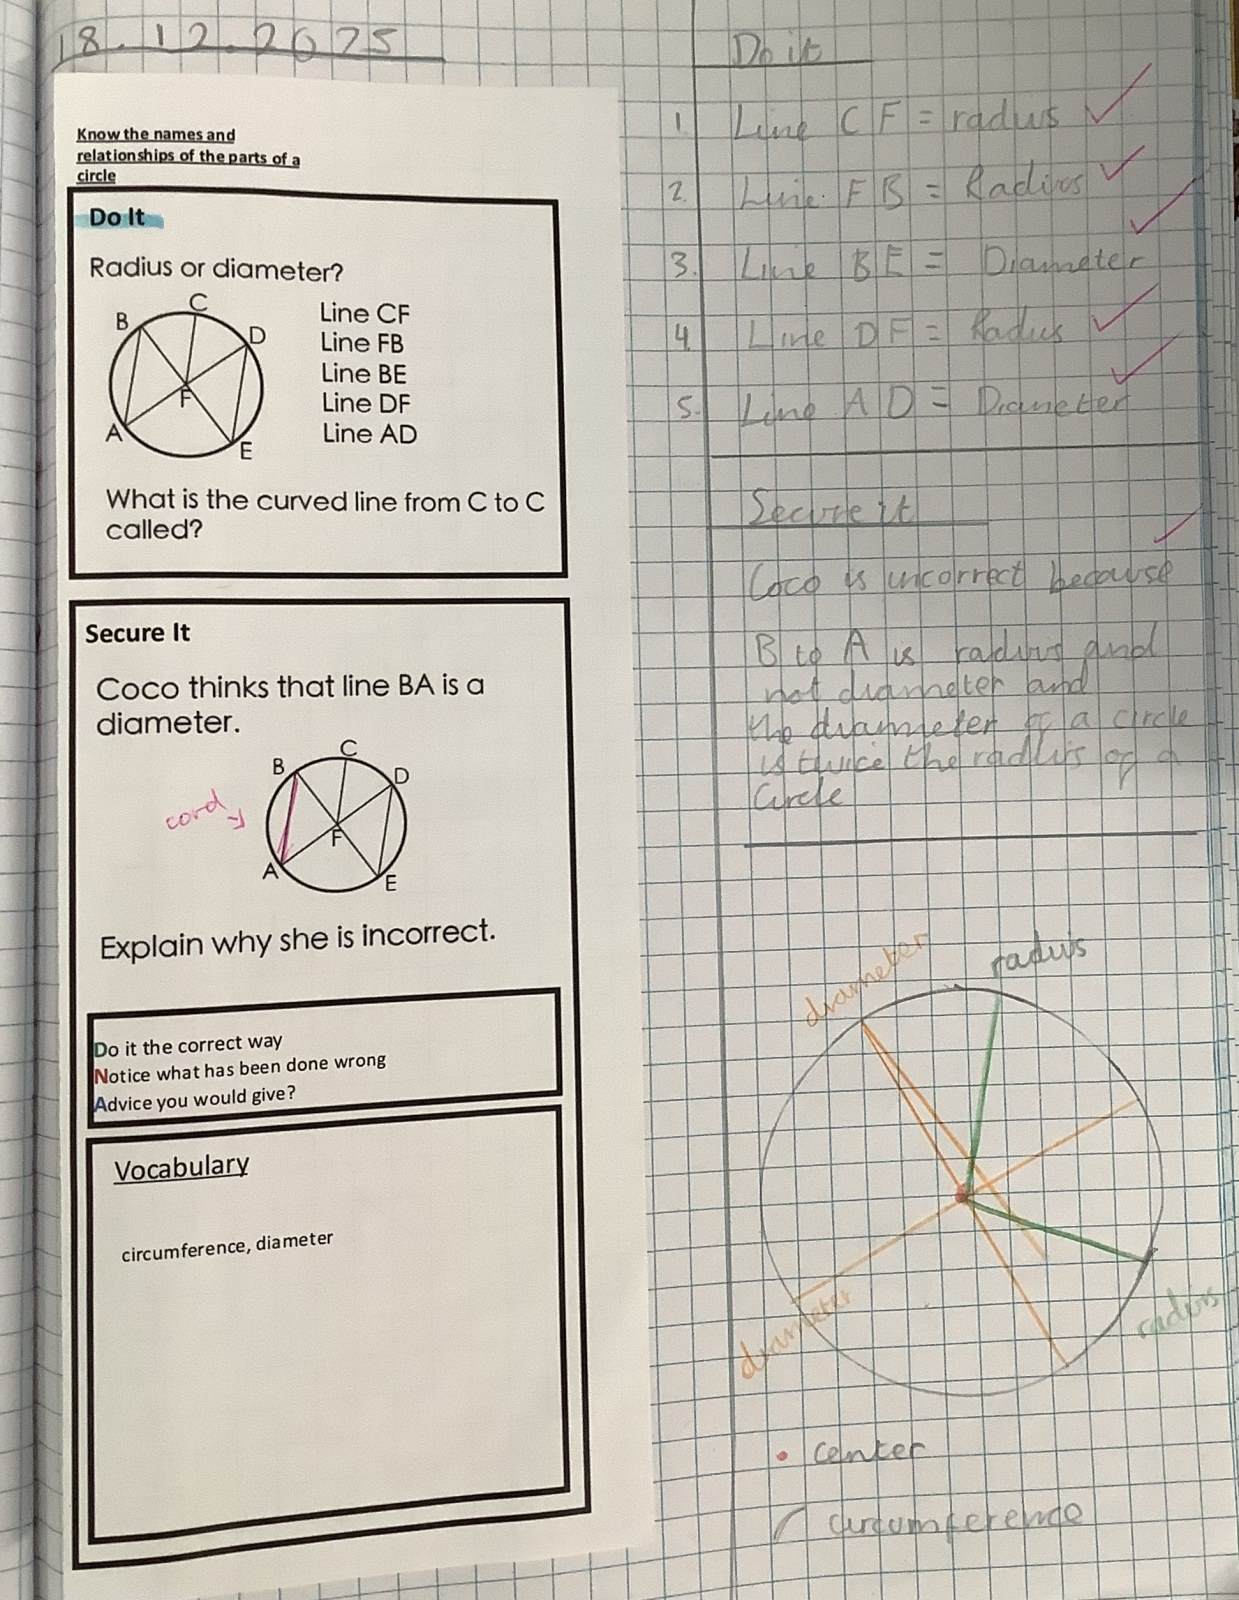 18.12.2025
Know the names and
relationships of the parts of a
circle
Do It
Radius or diameter?
B
C
D
F
A
E
Line CF
Line FB
Line BE
Line DF
Line AD
What is the curved line from C to C
called?
Secure It
Coco thinks that line BA is a
diameter.
cord
B
C
D
F
A
E
Explain why she is incorrect.
Do it the correct way
Notice what has been done wrong
Advice you would give?
Vocabulary
circumference, diameter
Do it
1. Line CF = radius
2. Line FB = Radius
3. Line BE = Diameter
4. Line DF = Radius
5. Line AD = Diameter
Secure it
Coco is uncorrect because
B to A is radius and
not diameter and
the diameter of a circle
is twice the radius of a
Circle
diameter
radius
diameter
radius
center
circumference